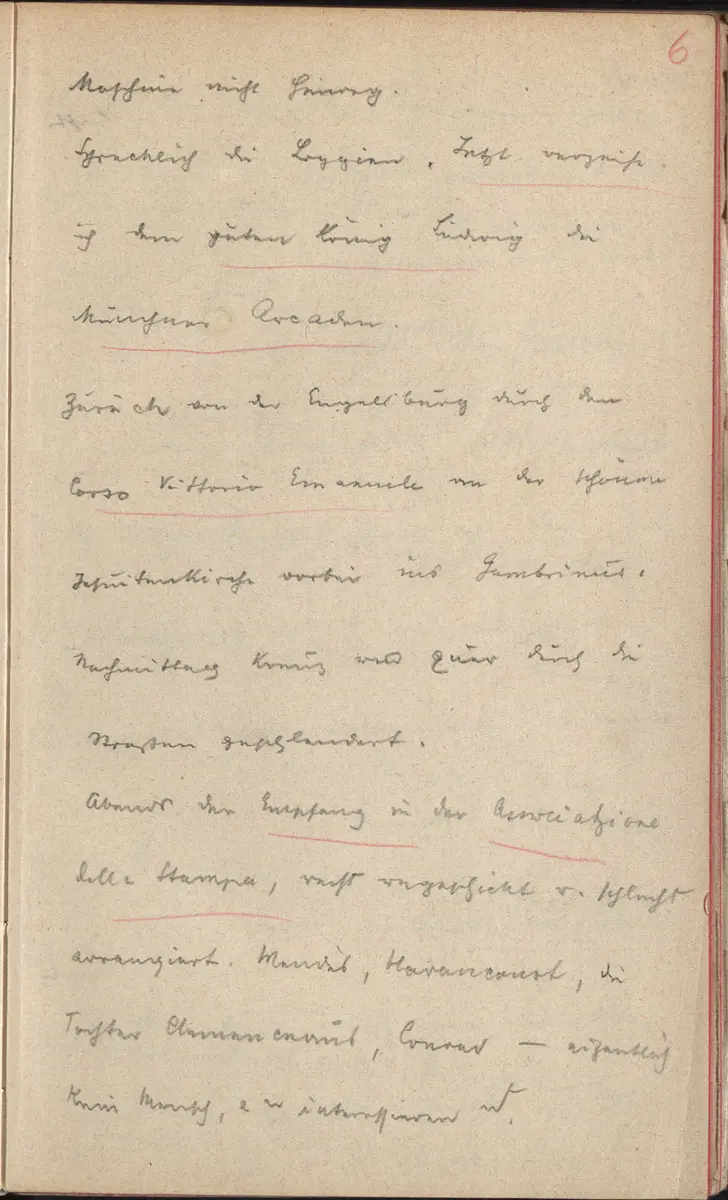 6
Maschine nicht hinweg.
Schrecklich die Loggien. Jetzt verzeihe
ich dem guten König Ludwig die
Münchner Arcaden.
Zurück von der Engelsburg durch den
Corso Vittorio Emanuele an der schönen
Jesuitenkirche vorbei ins Gambrinus.
Nachmittag Kreuz und quer durch die
Strassen geschlendert.
Abends der Empfang in der Associazione
della Stampa, recht ungeschickt u. schlecht
arrangiert. Mendès, Haraucourt, die
Tochter Clemenceaus, Conrad — eigentlich
kein Mensch, e er interessieren